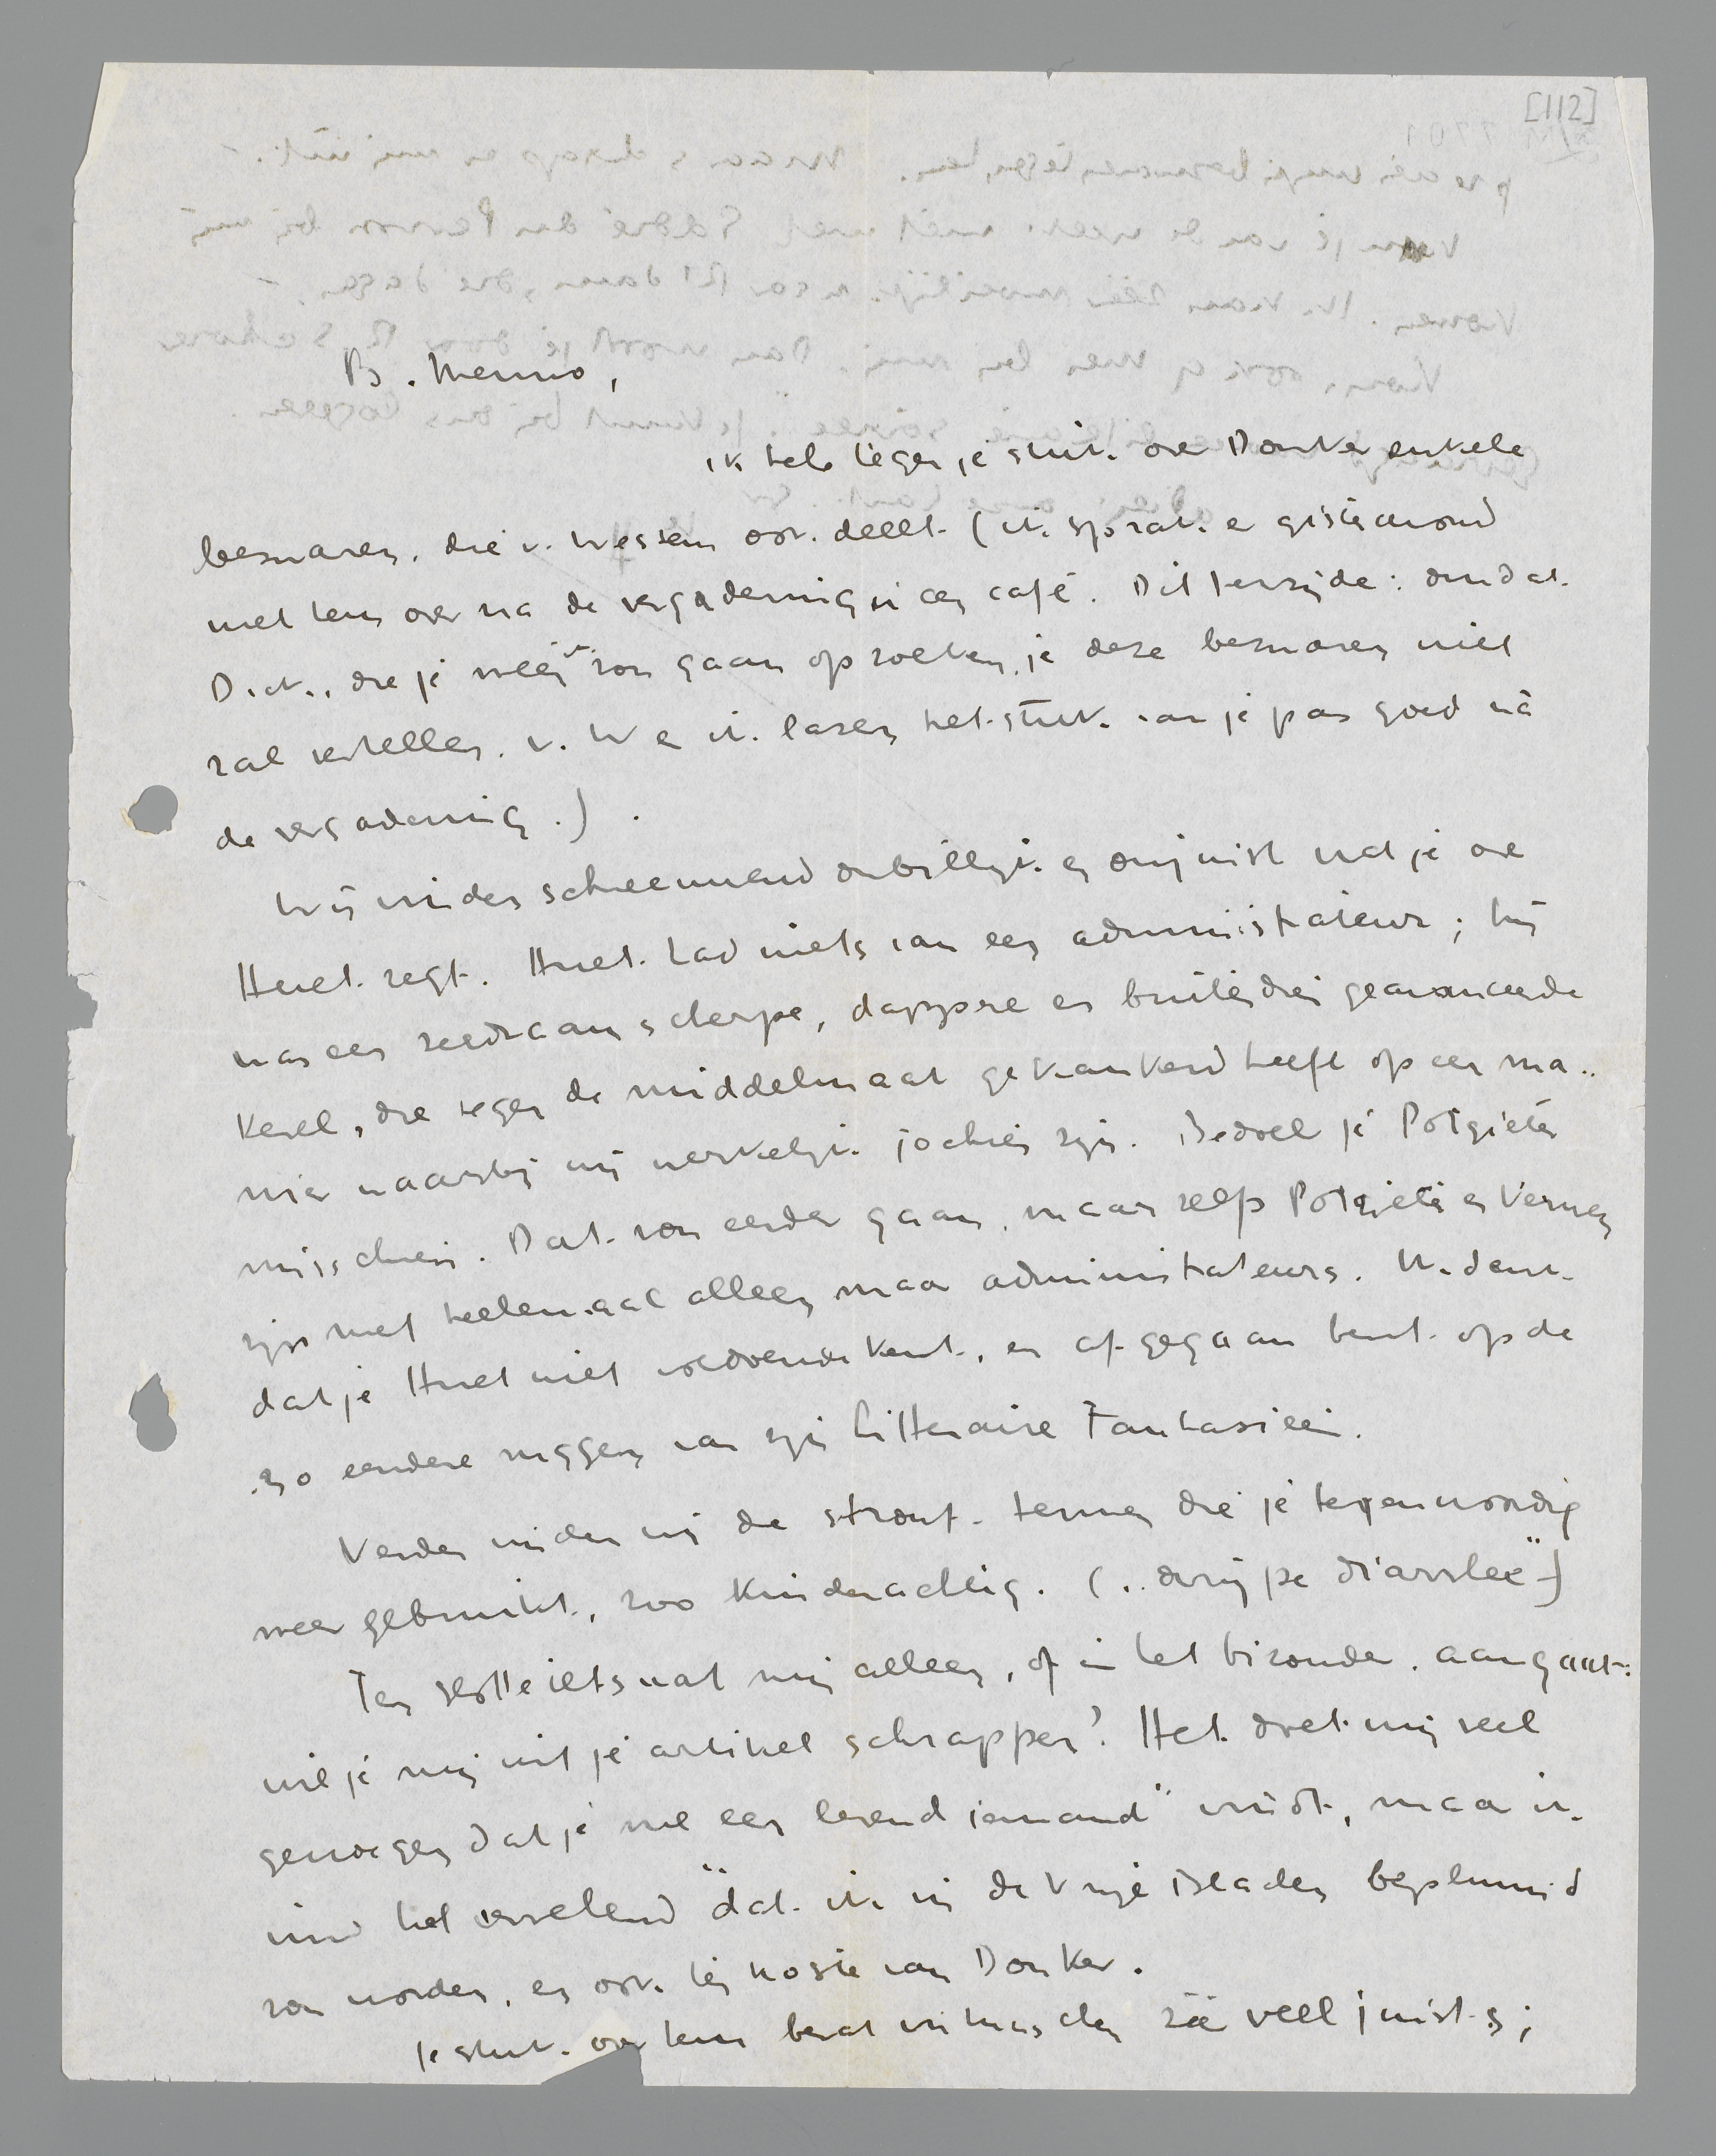 [112]
B. Menno,
ik heb tegen je stuk over Donker enkele
bezwaren, die v. Wessem ook deelt. (ik sprak er gisteravond
met hem over na de vergadering in een café. Dit terzijde: omdat
Dick, die je zou gaan opzoeken, je deze bezwaren niet
zal vertellen. v. W en ik lazen het stuk van je pas goed nà
de vergadering.).
Wij vinden schreeuwend onbillijk en onjuist wat je over
Huet zegt. Huet had niets van een administrateur; hij
was een zeldzaam scherpe, dappere en buitendien geavanceerde
kerel, die tegen de middelmaat gekankerd heeft op een ma-
nier waarbij wij werkelijk jochies zijn. Bedoel je Potgieter
misschien. Dat zou eerder gaan, maar zelfs Potgieter en Verwey
zijn niet heelemaal alleen maar administrateurs. Ik denk
dat je Huet niet voldoende kent, en af gegaan bent op de
zo eendere ruggen van zijn Litteraire Fantasieën.
Verder vinden wij de stront-termen die je tegenwoordig
weer gebruikt, zoo kinderachtig. („ diarrhee")
Ten slotte iets wat mij alleen, of in het bizonder, aangaat:
wil je mij uit je artikel schrappen? Het doet mij veel
genoegen dat je me een levend iemand" vindt, maar ik
vind het vervelend dat ik in de Vrije Bladen bepluimd
zou worden, en ook ten koste van Donker.
Je stuk over hem bevat intusschen zéér veel juists;